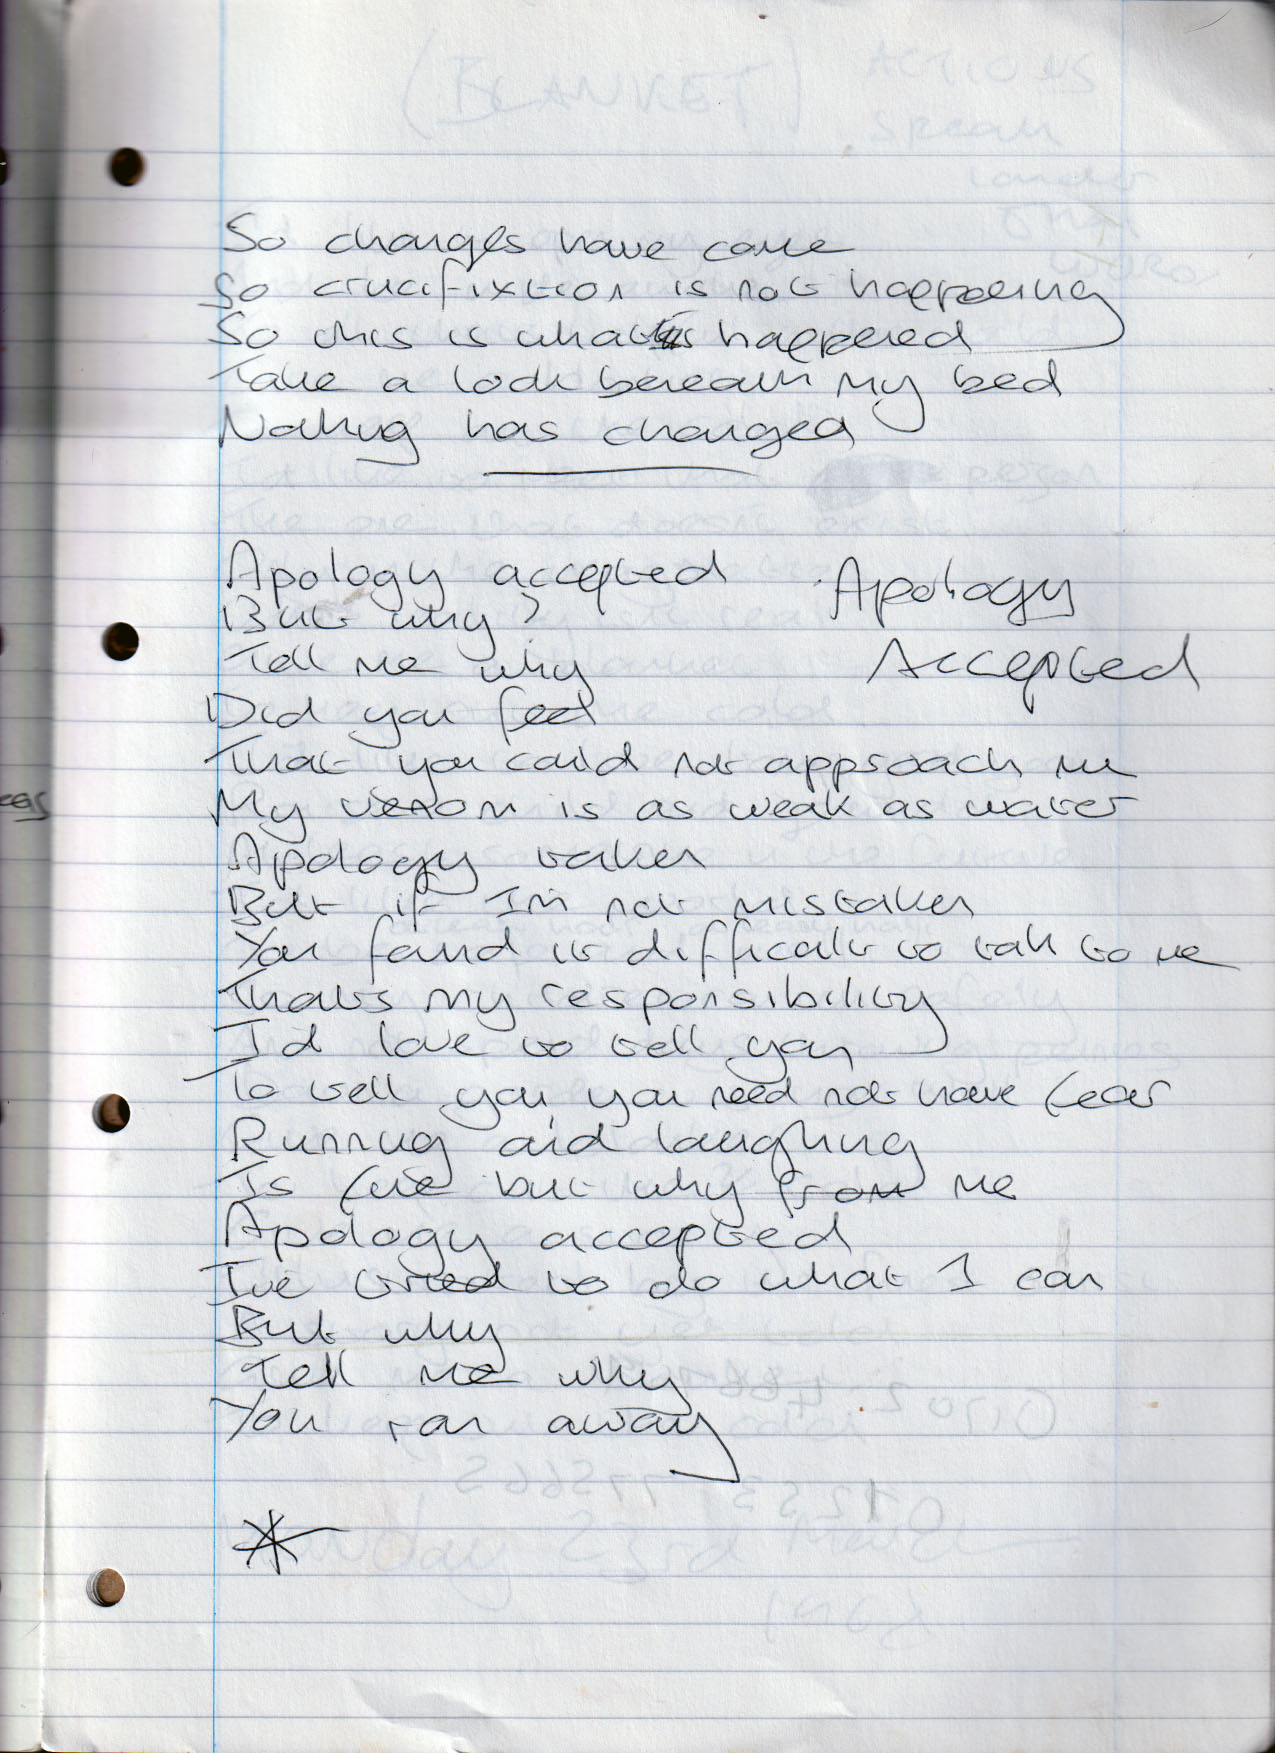 So changes have come
So crucifixtion is not happening
So this is what happened
Take a look beneath my bed
Nothing has changed
Apology accepted
But why?
Tell me why
Did you feel
That you could not approach me
My venom is as weak as water
Apology taken
But if I'm not mistaken
You found it difficult to talk to me
That's my responsibility
I'd love to tell you
To tell you you need not have fear
Running and laughing
Is fine but why from me
Apology accepted
I've tried to do what I can
But why
Tell me why
You ran away
Apology
Accepted
(BLANKET)
ACTIONS
speak
louder
than